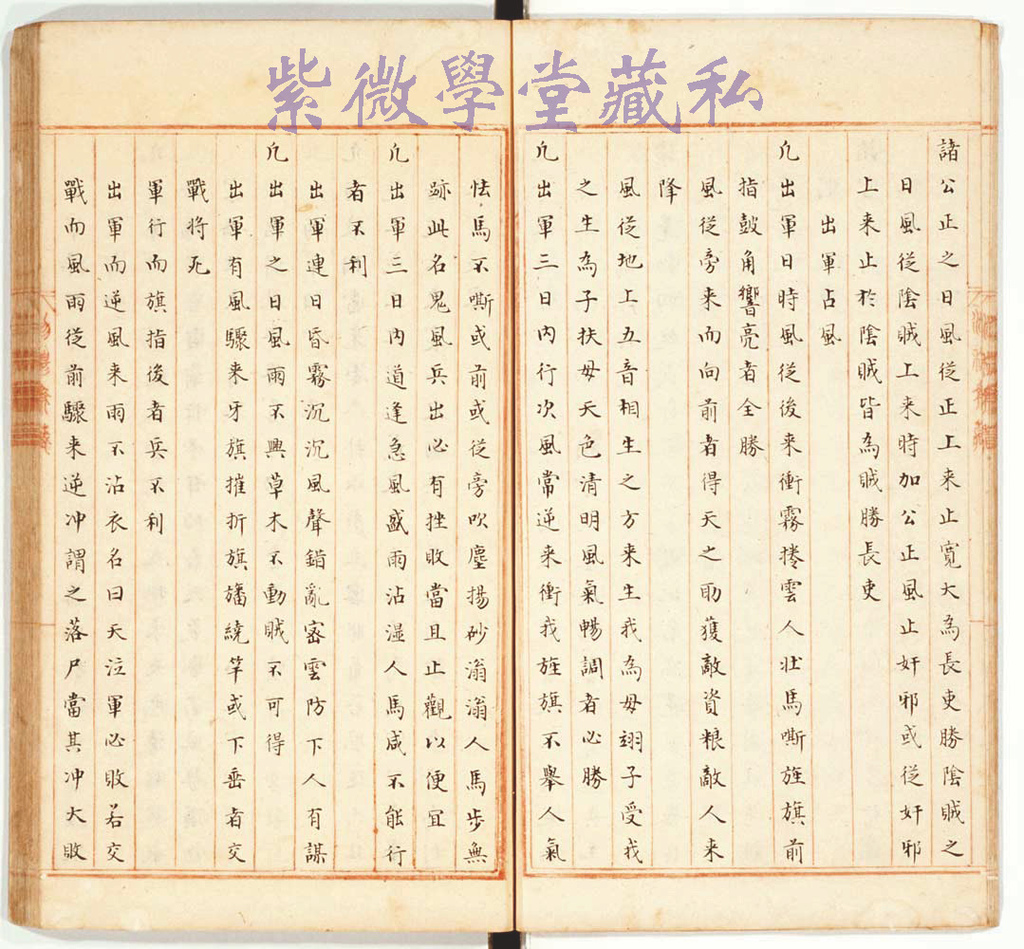 紫微學堂藏私
諸公正之日風從正上来止寬大為長吏勝陰賊之
日風從陰賊上来時加公正風止奸邪或從奸邪
上来止於陰賊皆為賊勝長吏
出軍占風
凢出軍日時風從後来衝霧捲雲人壯馬嘶旌旗前
指鼓角響亮者全勝
風從旁来而向前者得天之助獲敵資粮敵人来
降
風從地上五音相生之方来生我為母翊子受我
之生為子扶母天色清明風氣暢調者必勝
凢出軍三日内行次風常逆来衝我旌旗不舉人氣
怯馬不嘶或前或從旁吹塵揚砂滃滃人馬步無
跡此名鬼風兵出必有挫敗當且止觀以便宜
凢出軍三日内道逢急風盛雨沾濕人馬咸不能行
者不利
出軍連日昏霧沉沉風聲錯亂宻雲防下人有謀
凢出軍之日風雨不興草木不動賊不可得
出軍有風驟来牙旗摧折旗旛繞竿或下垂者交
戰将死
軍行而旗指後者兵不利
出軍而逆風来雨不沾衣名曰天泣軍必敗若交
戰而風雨從前驟来逆冲謂之落尸當其冲大敗